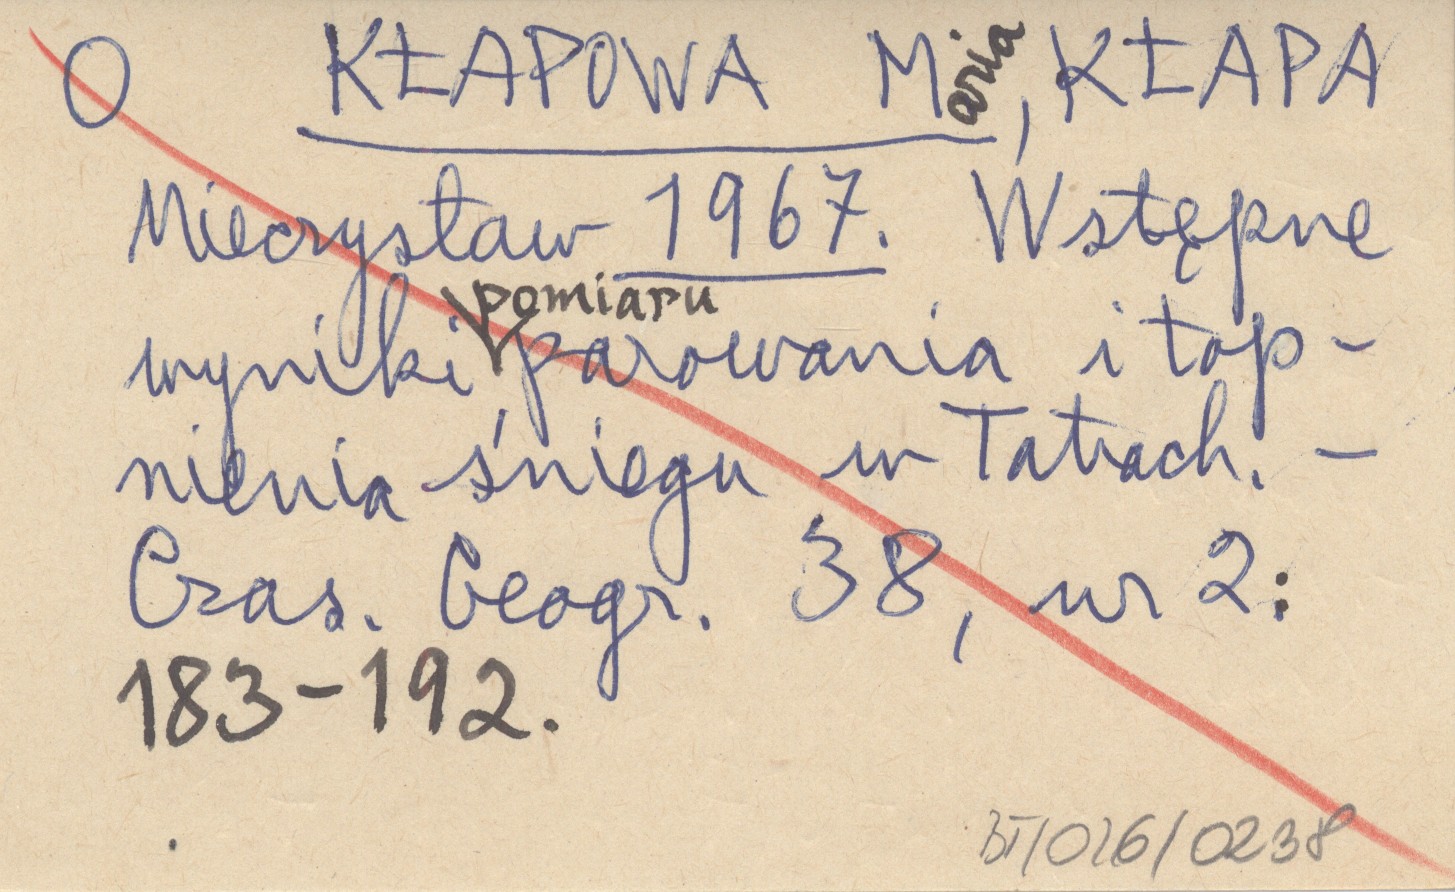 O KŁAPOWA Maria, KŁAPA
Mieczysław 1967. Wstępne
wyniki pomiaru parowania i top-
nienia śniegu w Tatrach. -
Czas. Geogr. 38, nr 2:
183-192.
BT/026/0238